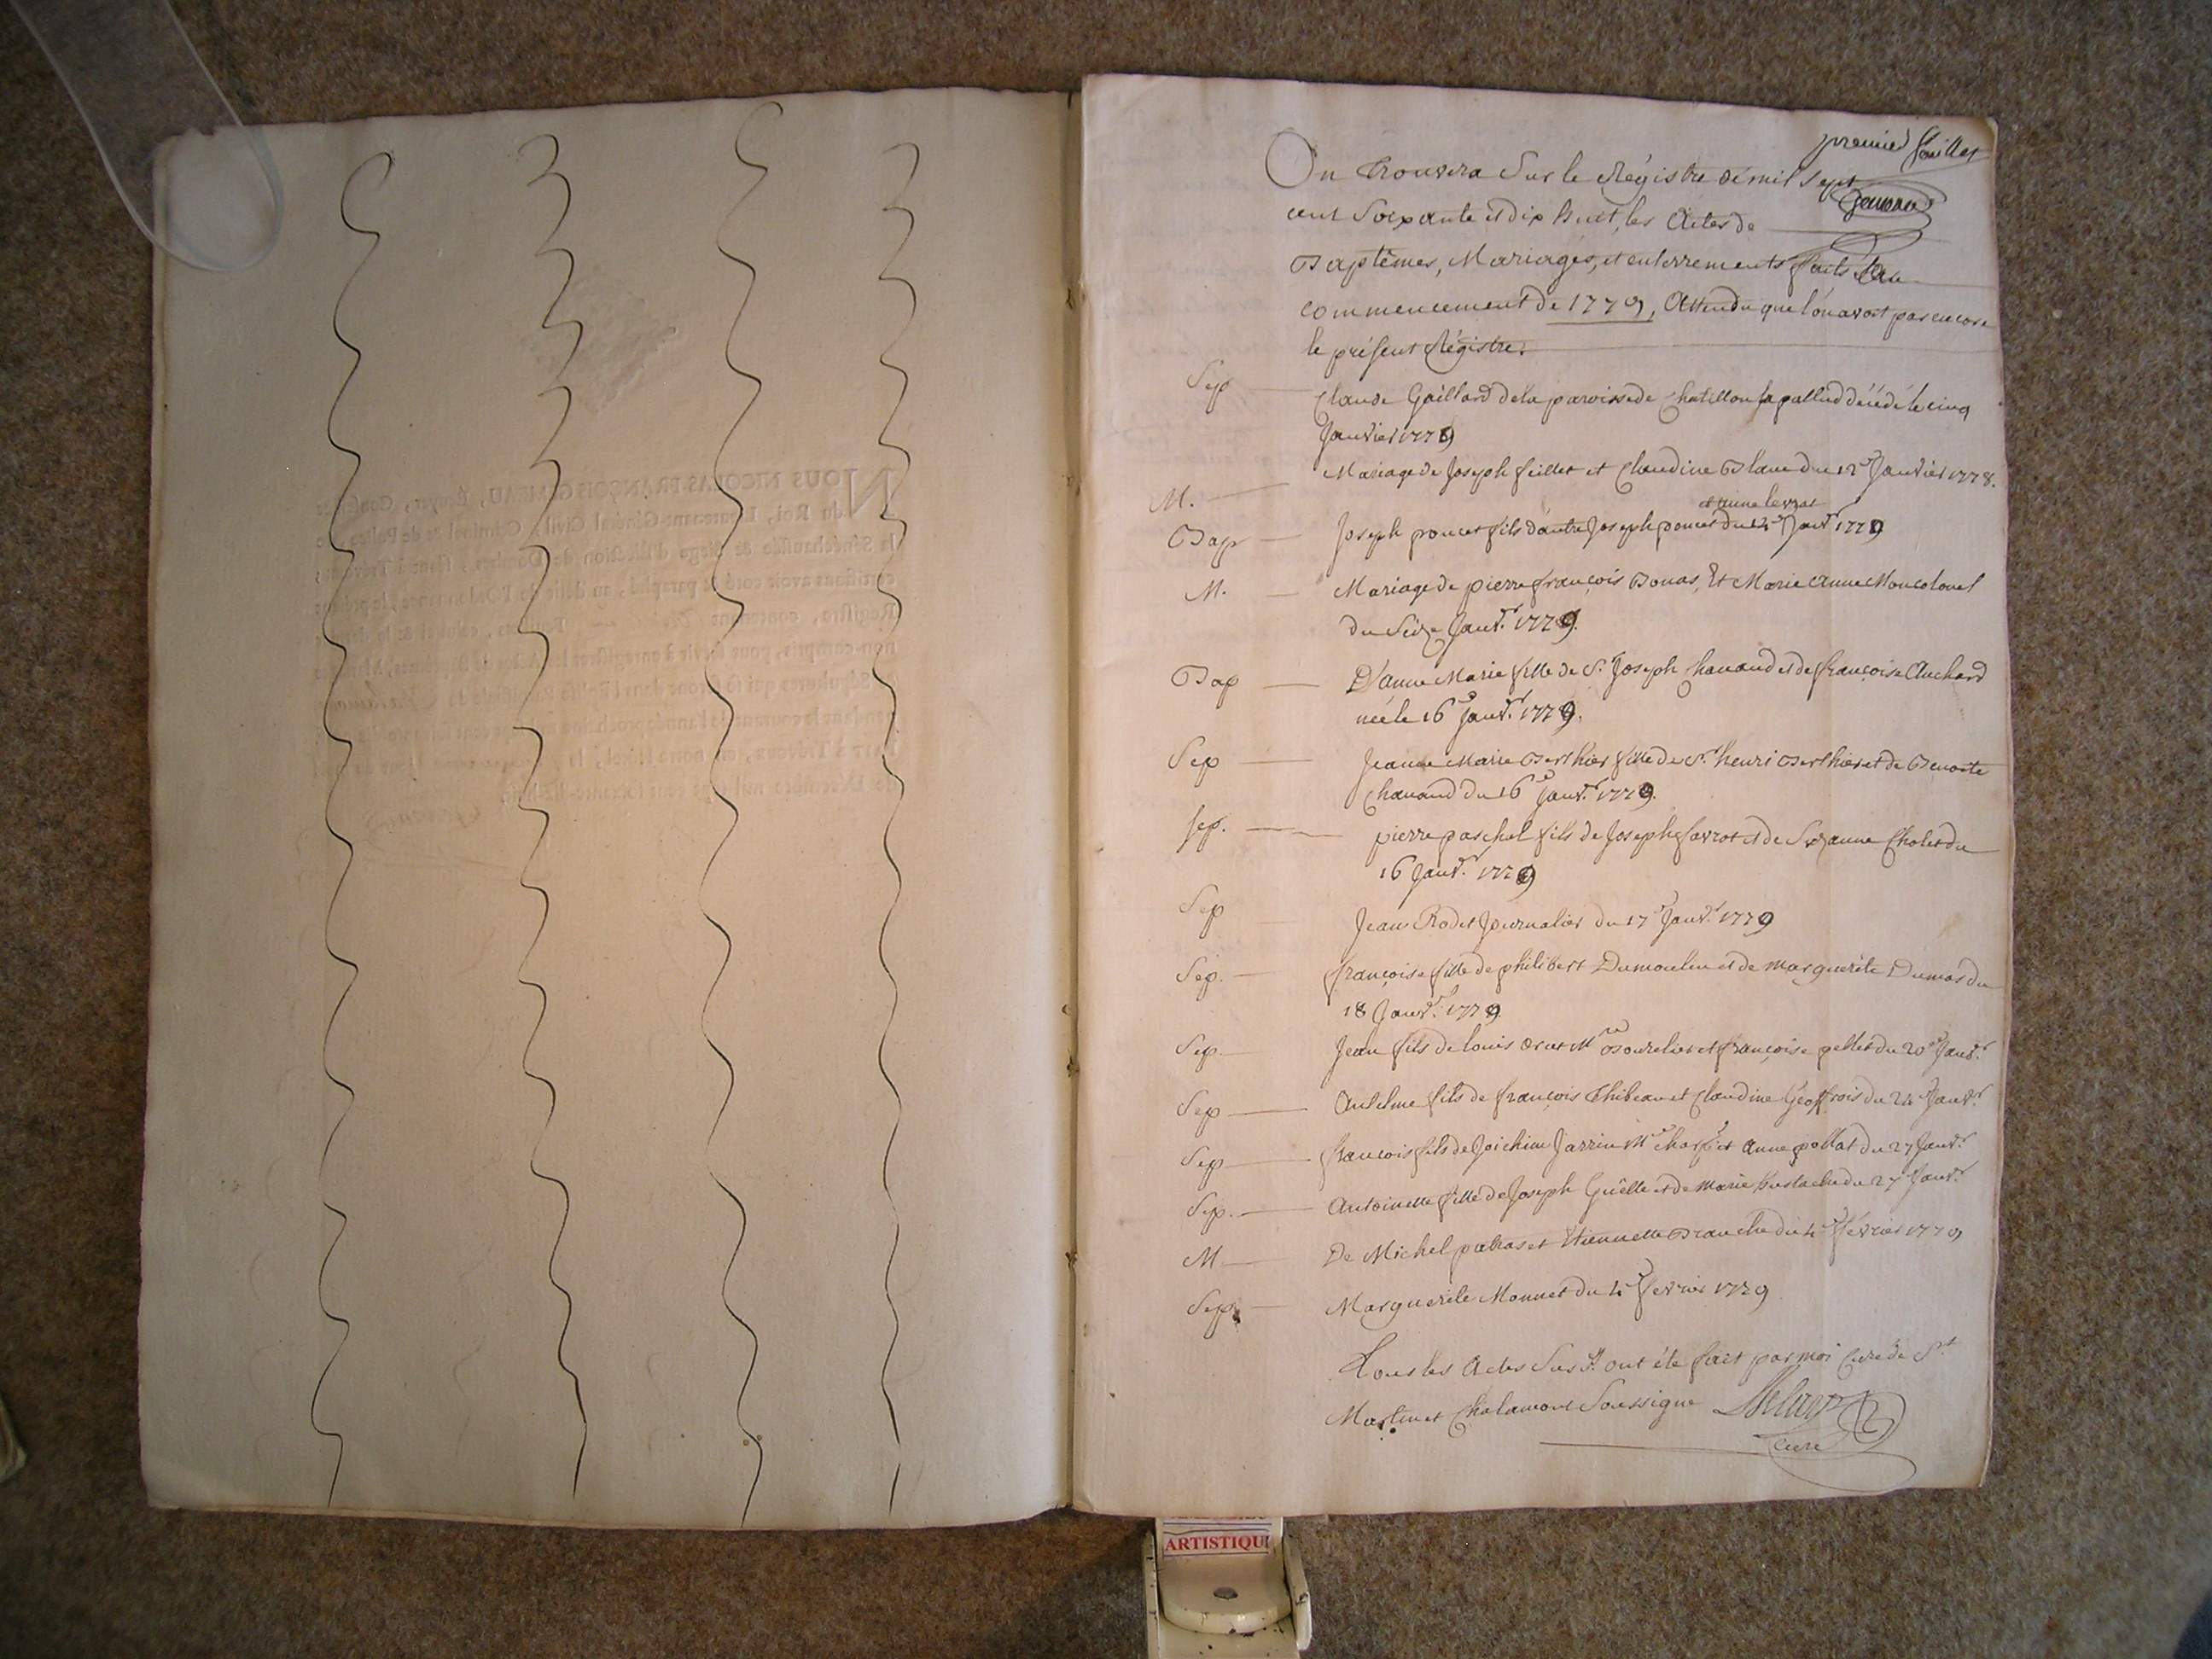 premier feuillet
On trouvera sur le Régistre de mil sept
cent soixante et dix huit, les Actes de
Baptêmes, Mariages, et enterrements faits au
commencement de 1779, Attendu que l'on avoit pas encore
le présent Régistre.
Sep Claude Gaillard de la paroisse de Chatillon la pallud décédé le cinq
Janvier 1779
M. Mariage de Joseph feillet et Claudine Blanc du 12e Janvier 1778.
et anne levrat
Bap Joseph poncet fils d'autre Joseph poncet du Janv. 1779
M. Mariage de pierre françois Bonas, Et Marie Anne Moncolonel
du Seize Janv. 1779.
Bap D'anne Marie fille de Sr. Joseph Chanaud et de françoise Cluchard
née le 16 Janv. 1779.
Sep Jeanne Marie Berthier fille de Sr. henri Berthier et de Benoite
Chanaud du 16 Janv. 1779.
Sep. pierre paschal fils de Joseph favrot et de Suzanne Cholet du
16 Janv. 1779
Sep Jean Rodet Journalier du 17 Janv. 1779
Sep. françoise fille de philibert Dumoulin et de marguerite Dumas du
18 Janv. 1779
Sep. Jean fils de louis Bourelier et françoise pellet du 20 Janv.
Sep Antelme fils de françois Thibeau et Claudine Geoffrois du 24 Janv.
Sep françois fils de Joichim Jarrin Me charp. et anne pollat du 27 Janv.
Sep. Antoinette fille de Joseph Guëlle et de marie Eustache du 27 Janv.
M De Michel et Etiennette Branche du 4 février 1779
Sep. Marguerite Monnet du 4 fevrier 1779
Tous les Actes susd. ont été fait par moi Curé de St
Martin et Chalamont Soussigné
Curé
NOUS NICOLAS-FRANÇOIS GEMEAU, Ecuyer, Conseiller
du Roi, Lieutenant-Général Civil, Criminel & de Police
la Sénéchaussée & siége d'Election de Dombes, séant à Trévoux,
certifions avoir coté & paraphé, au désir de l'Ordonnance, le présent
Registre, contenant
non-compris, pour servir à enregistrer les Actes de Baptêmes, Mariages
ARTISTIQU